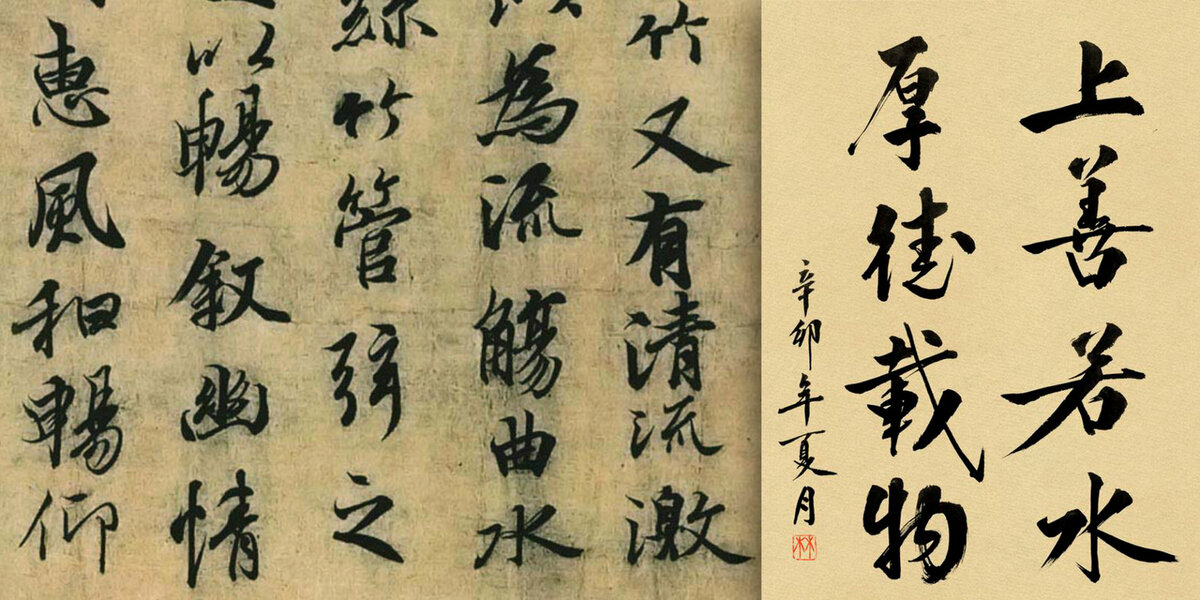 竹又有清流激
為流觴曲水
絲竹管弦之
以暢叙幽情
惠風和暢仰
上善若水
厚德載物
辛卯年夏月
林